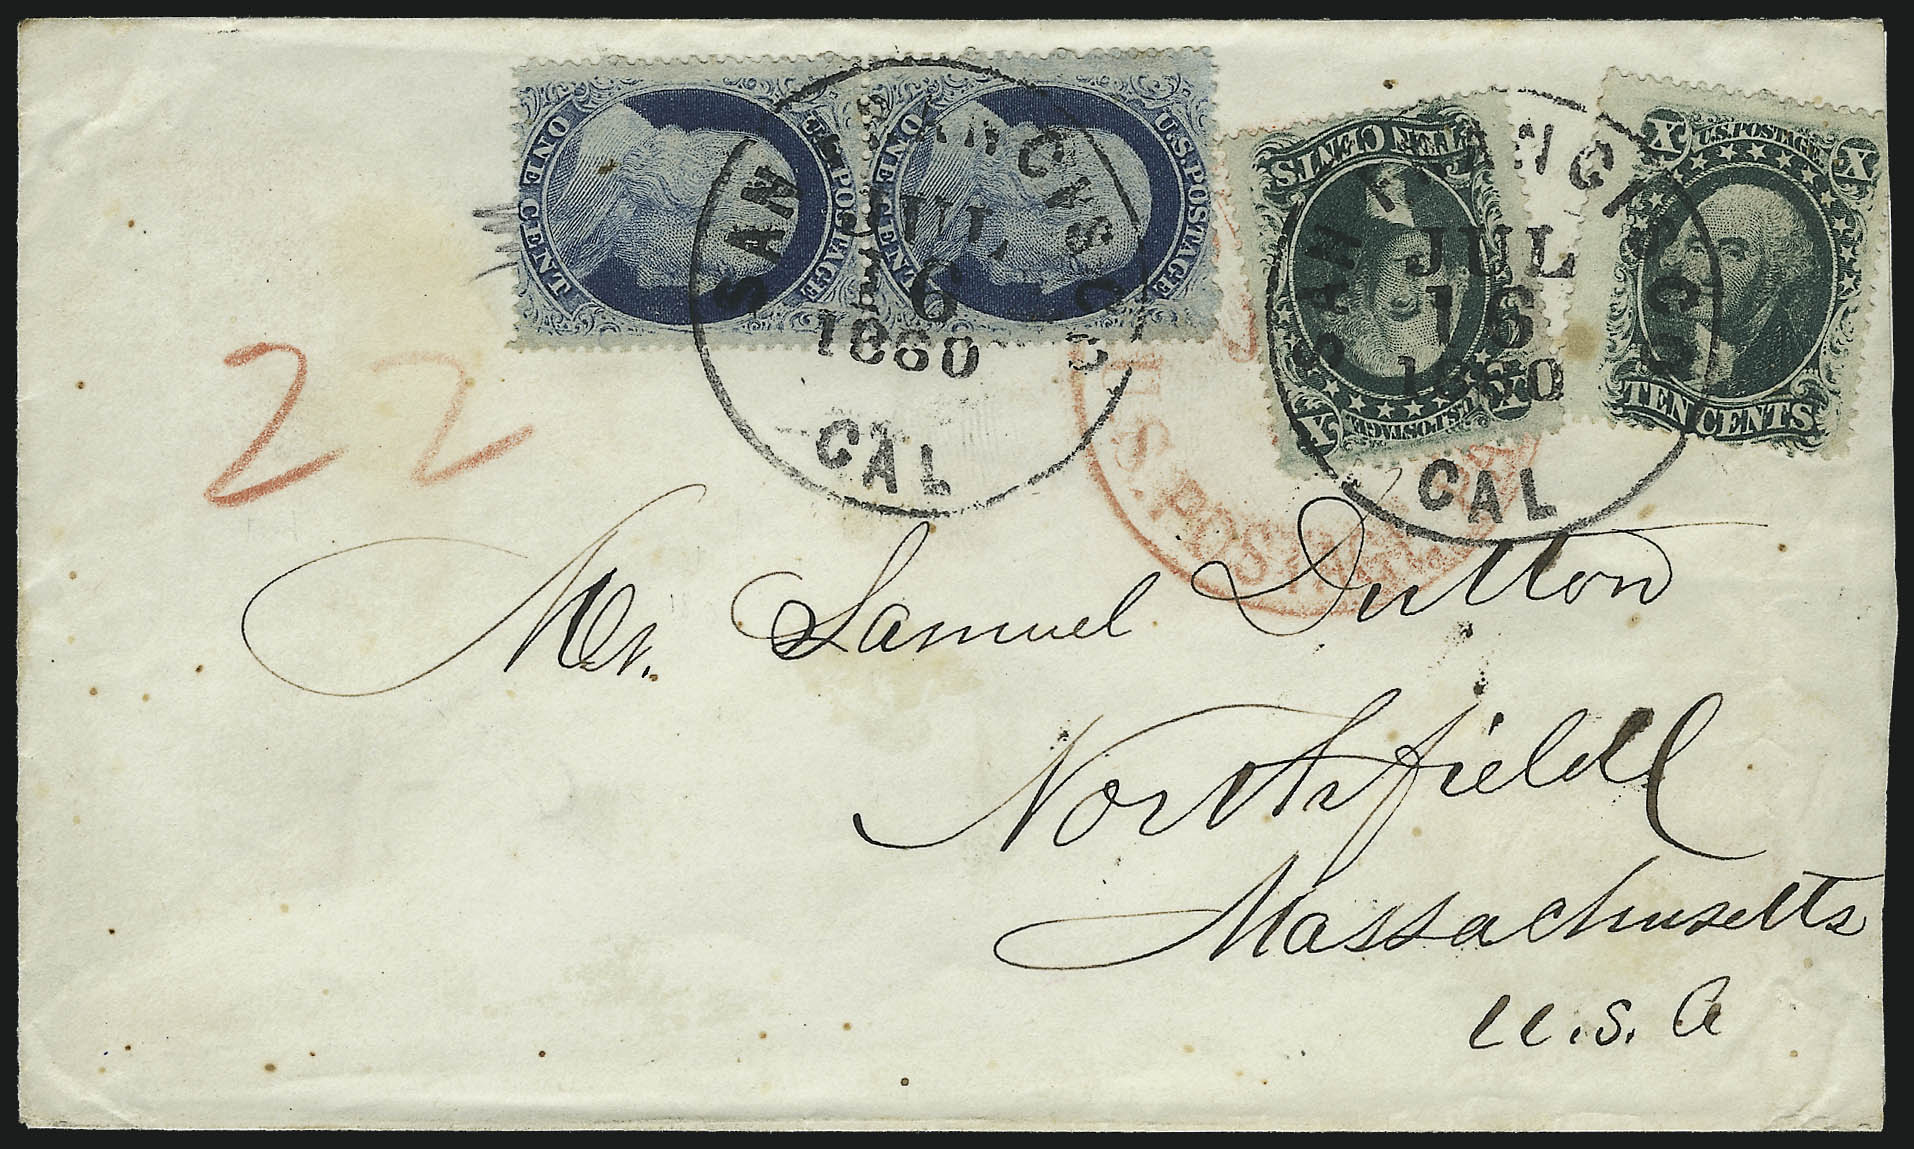 U.S. POSTAGE
ONE CENT
U.S. POSTAGE
ONE CENT
TEN CENTS
U.S. POSTAGE
X X
X U.S. POSTAGE X
TEN CENTS
SAN FRANCISCO
JUL
16
1860
CAL
SAN FRANCISCO
JUL
16
1860
CAL
22
U.S. POSTAGE
Mr. Samuel Dutton
Northfield
Massachusetts
U.S.A